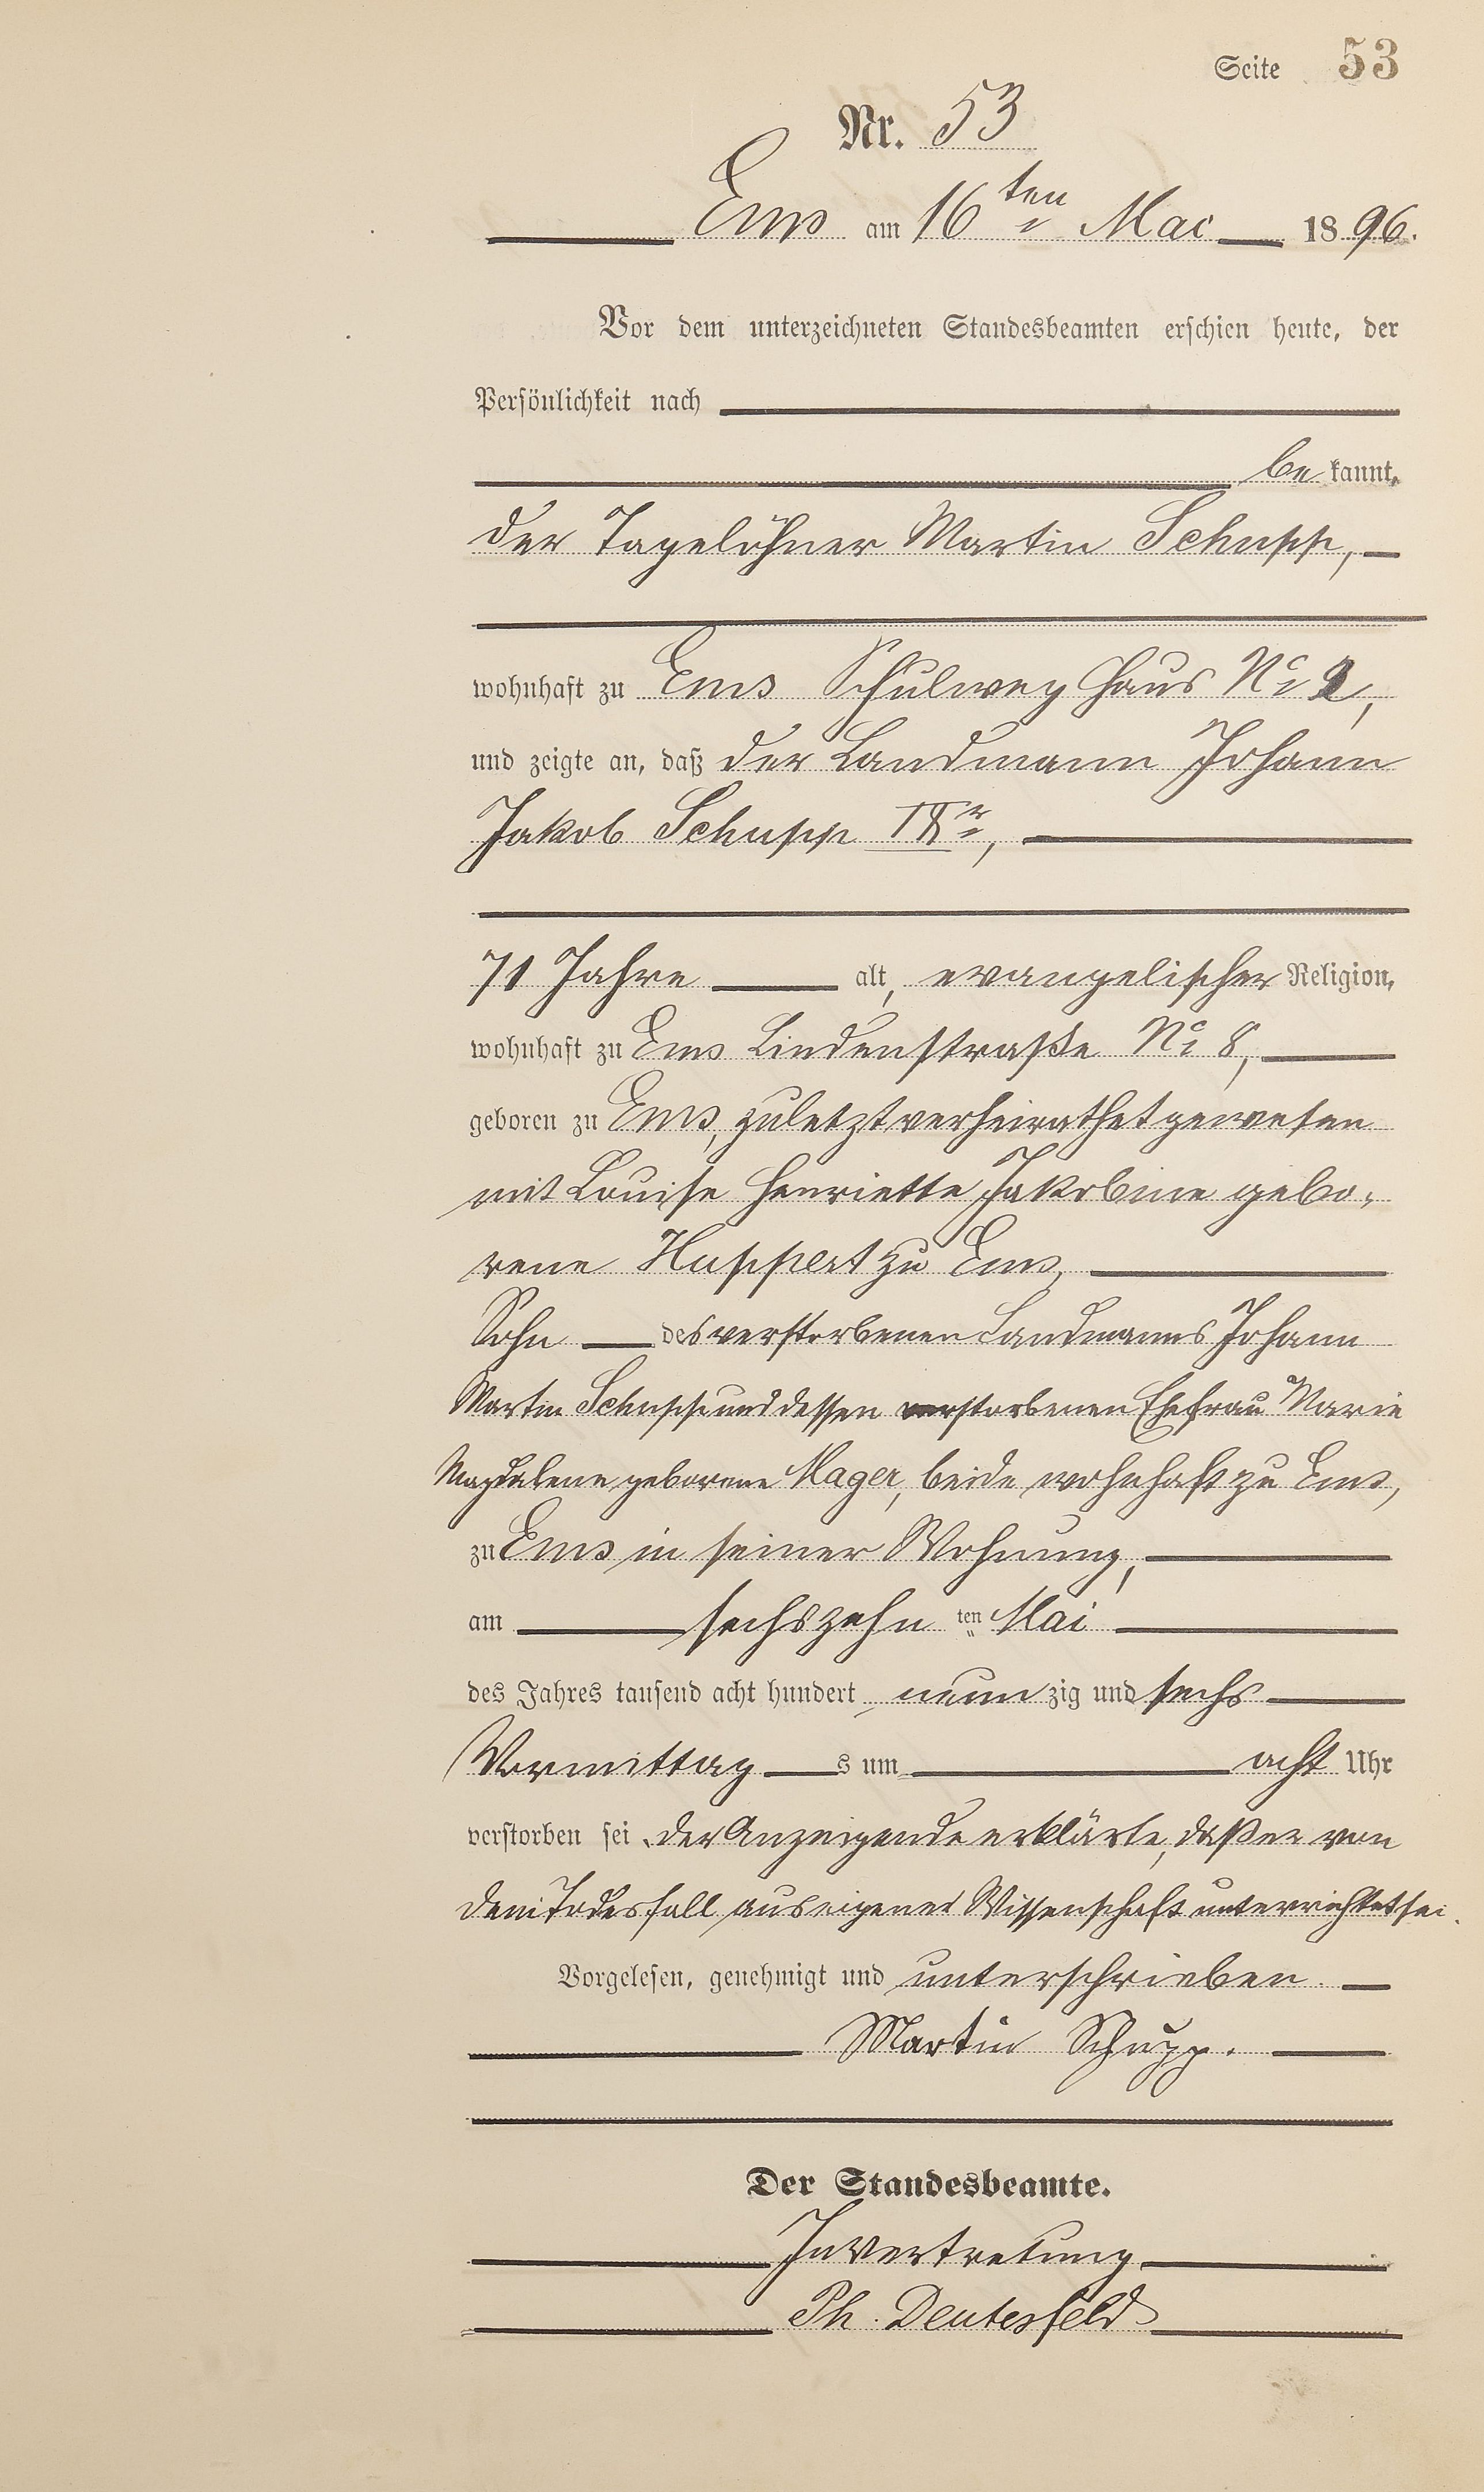 Seite 53
Nr. 53
Ems am 16ten Mai 1896.
Vor dem unterzeichneten Standesbeamten erschien heute, der
Persönlichkeit nach
be kannt,
der Tagelöhner Martin Schupp,
wohnhaft zu Ems Schulweg Haus No 2,
und zeigte an, daß der Landmann Johann
Jakob Schupp IXr,
71 Jahre alt, evangelischer Religion,
wohnhaft zu Ems Lindenstraße No 8,
geboren zu Ems, zuletzt verheirathet gewesen
mit Louise Henriette Jakobine gebo-
rene Huppert zu Ems,
Sohn des verstorbenen Landmanns Johann
Martin Schupp und dessen verstorbenen Ehefrau Marie
Magdalene geborene Mager, beide wohnhaft zu Ems,
zu Ems in seiner Wohnung,
am sechszehn ten Mai
des Jahres tausend acht hundert neun zig und sechs
Vormittag s um acht Uhr
verstorben sei. Der Anzeigende erklärte, daß er von
dem Todesfall aus eigener Wissenschaft unterrichtet sei.
Vorgelesen, genehmigt und unterschrieben.
Martin Schupp.
Der Standesbeamte.
In Vertretung
Ph. Deutesfeld